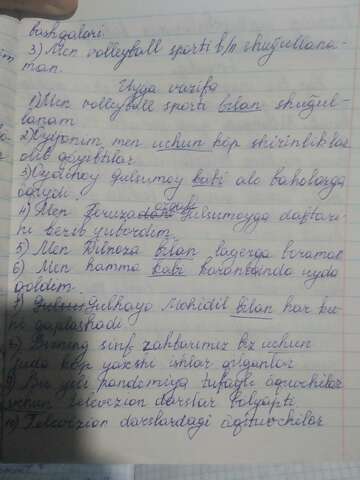 boshqalari.
3) Men volleyball sporti b/n shug'ullana-
man.
Uyga vazifa
1) Men volleyball sporti bilan shug'ul-
lanam
2) Oyijonim men uchun ko'p shirinliklar
olib qo'yibtilar
3) Oydinoy Gulsumoy kabi a'lo baholarga
o'qiydi.
4) Men Feruza dan orqali Gulsumoyga daftari-
ni berib yubordim.
5) Men Dilnoza bilan lagerga boraman
6) Men hamma kabi karantinda uyda
qoldim.
7) Gulhayo Mohidil bilan har ku-
ni gaplashadi.
8) Bizning sinf rahbarimiz biz uchun
juda ko'p yaxshi ishlar qilganlar
9) Bu yil pandemiya tufayli o'quvchilar
uchun televizion darslar bo'lyapti.
10) Televizion darslardagi o'qituvchilar